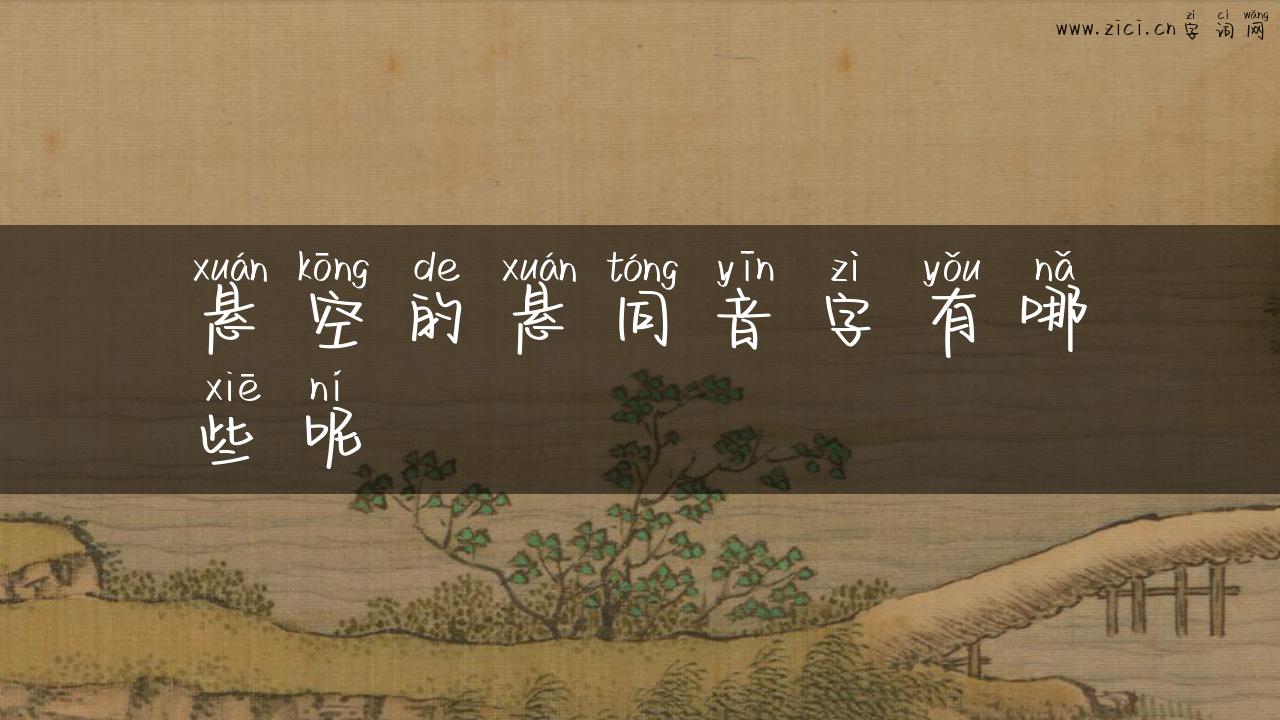 zì cí wǎng
www.zici.cn 字词网
xuán kōng de xuán tóng yīn zì yǒu nǎ
悬空的悬同音字有哪
xiē ní
些呢